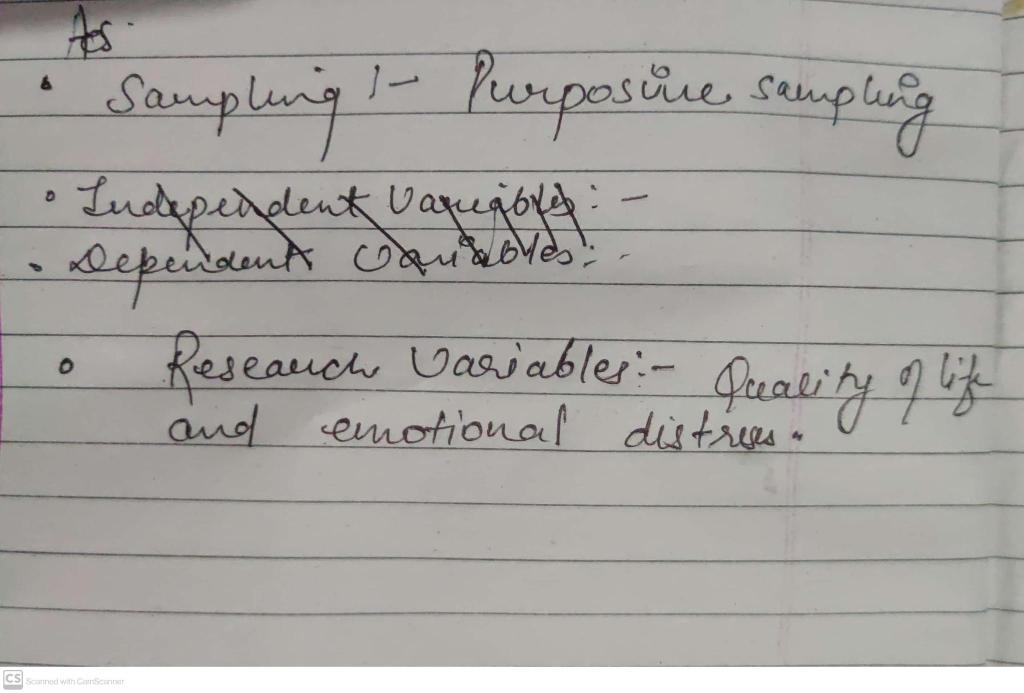 As.
• Sampling :- Purposive sampling
• Independent Variables : -
• Dependent Variables : -
• Research Variables:- Quality of life
and emotional distress.
CS Scanned with CamScanner